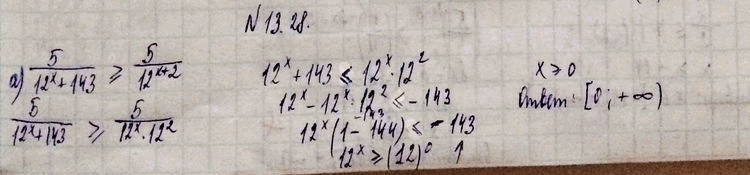 N 13.28.
а) 5/(12^x+143) ≥ 5/12^(x+2)
5/(12^x+143) ≥ 5/(12^x·12^2)
12^x+143 ≤ 12^x·12^2
12^x-12^x·12^2 ≤ -143
-143
12^x(1-144) ≤ -143
12^x ≥ (12)^0 1
x ≥ 0
Ответ: [0; +∞)